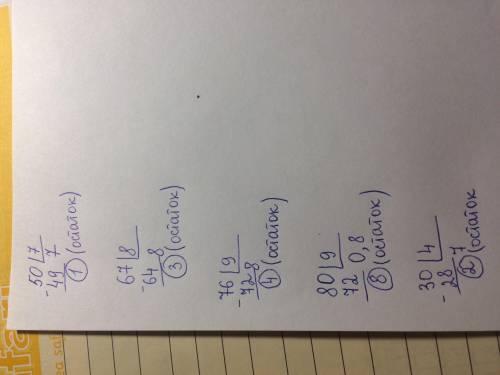 - 50 | 7
49 7
1 (остаток)
67 | 8
- 64 8
3 (остаток)
76 | 9
- 72 8
4 (остаток)
80 | 9
72 0,8
8 (остаток)
- 30 | 4
28 7
2 (остаток